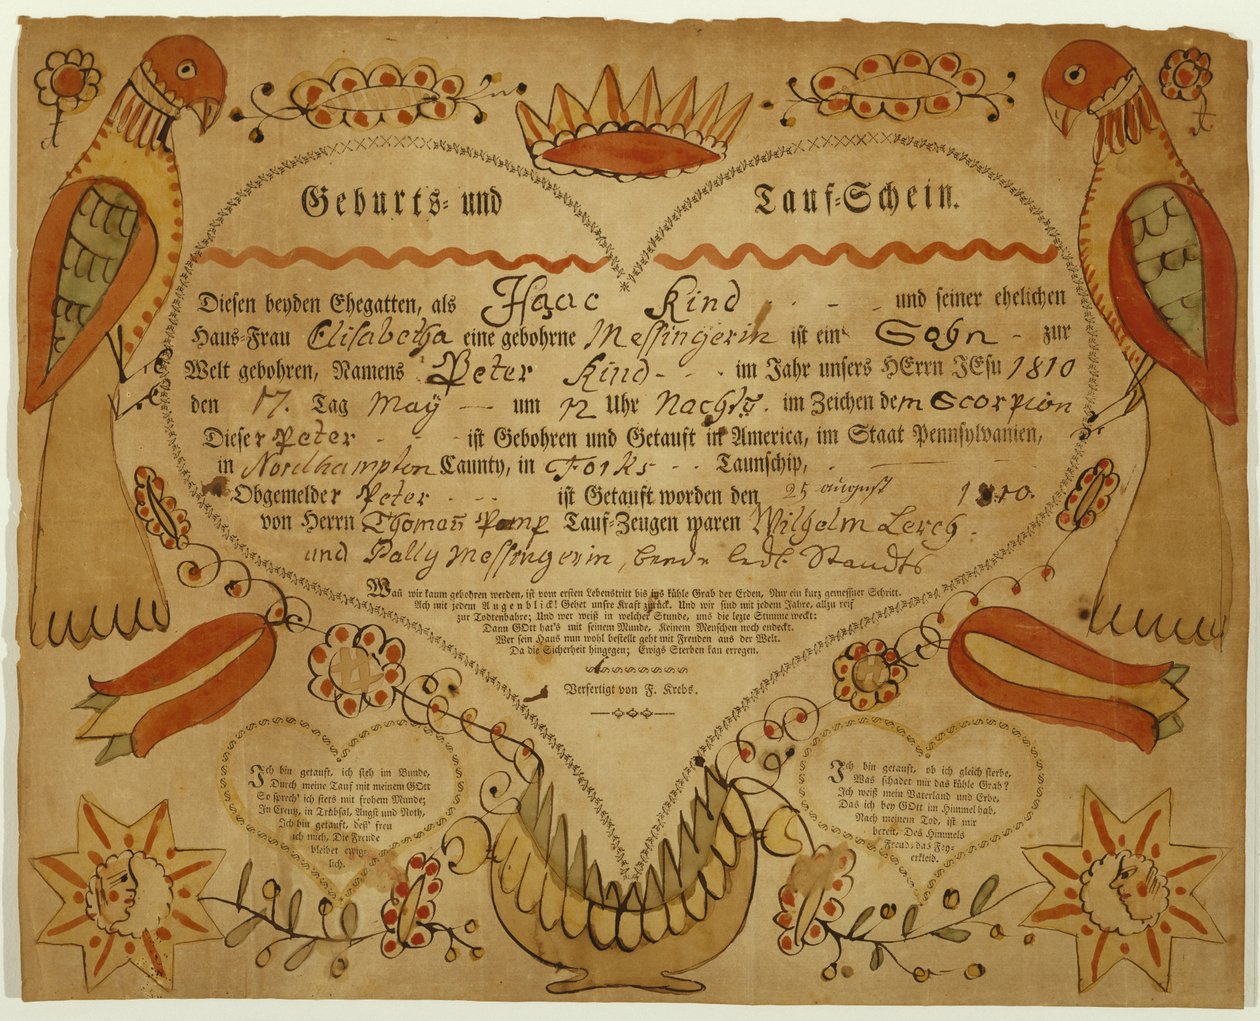 Geburts- und Tauf-Schein.
Diesen beyden Ehegatten, als Isaac Kind und seiner ehelichen
Haus-Frau Elisabetha eine gebohrne Messingerin ist ein Sohn zur
Welt gebohren, Namens Peter Kind im Jahr unsers HErrn JEsu 1810
den 17. Tag Maÿ um 12 Uhr Nachts. im Zeichen dem Scorpion
Dieser Peter ist Gebohren und Getauft in America, im Staat Pennsylvanien,
in Nordhampton Caunty, in Forks Taunschip,
Obgemelder Peter ist Getauft worden den 25 august 1810.
von Herrn Thoman Pomp Tauf-Zeugen waren Wilhelm Lerch.
und Pally Messingerin, beyde ledl. Standts
Wañ wir kaum gebohren werden, ist vom ersten Lebenstritt bis ins kühle Grab der Erden, Nur ein kurz gemeßner Schritt.
Ach mit jedem Augenblick! Gehet unsre Kraft zurück. Und wir sind mit jedem Jahre, allzu reif
zur Todtenbahre; Und wer weiß in welcher Stunde, uns die lezte Stimme weckt:
Dann GOtt hat's mit seinem Munde, Keinem Menschen noch endeckt.
Wer sein Haus nun wohl bestellt geht mit Freuden aus der Welt.
Da die Sicherheit hingegen; Ewigs Sterben kan erregen.
Verfertigt von F. Krebs.
Ich bin getauft, ich steh im Bunde,
Durch meine Tauf mit meinem GOtt
So sprech' ich stets mit frohem Munde;
In Creutz, in Trübsal, Angst und Noth,
Ich bin getauft, deß' freu
ich mich, Die Freude
bleibet ewig-
lich.
Ich bin getauft, ob ich gleich sterbe,
Was schadet mir das kühle Grab?
Ich weiß mein Vaterland und Erbe,
Das ich bey GOtt im Himmel hab,
Nach meinem Tod, ist mir
bereit, Des Himmels
Freud, das Fey-
erkleid.